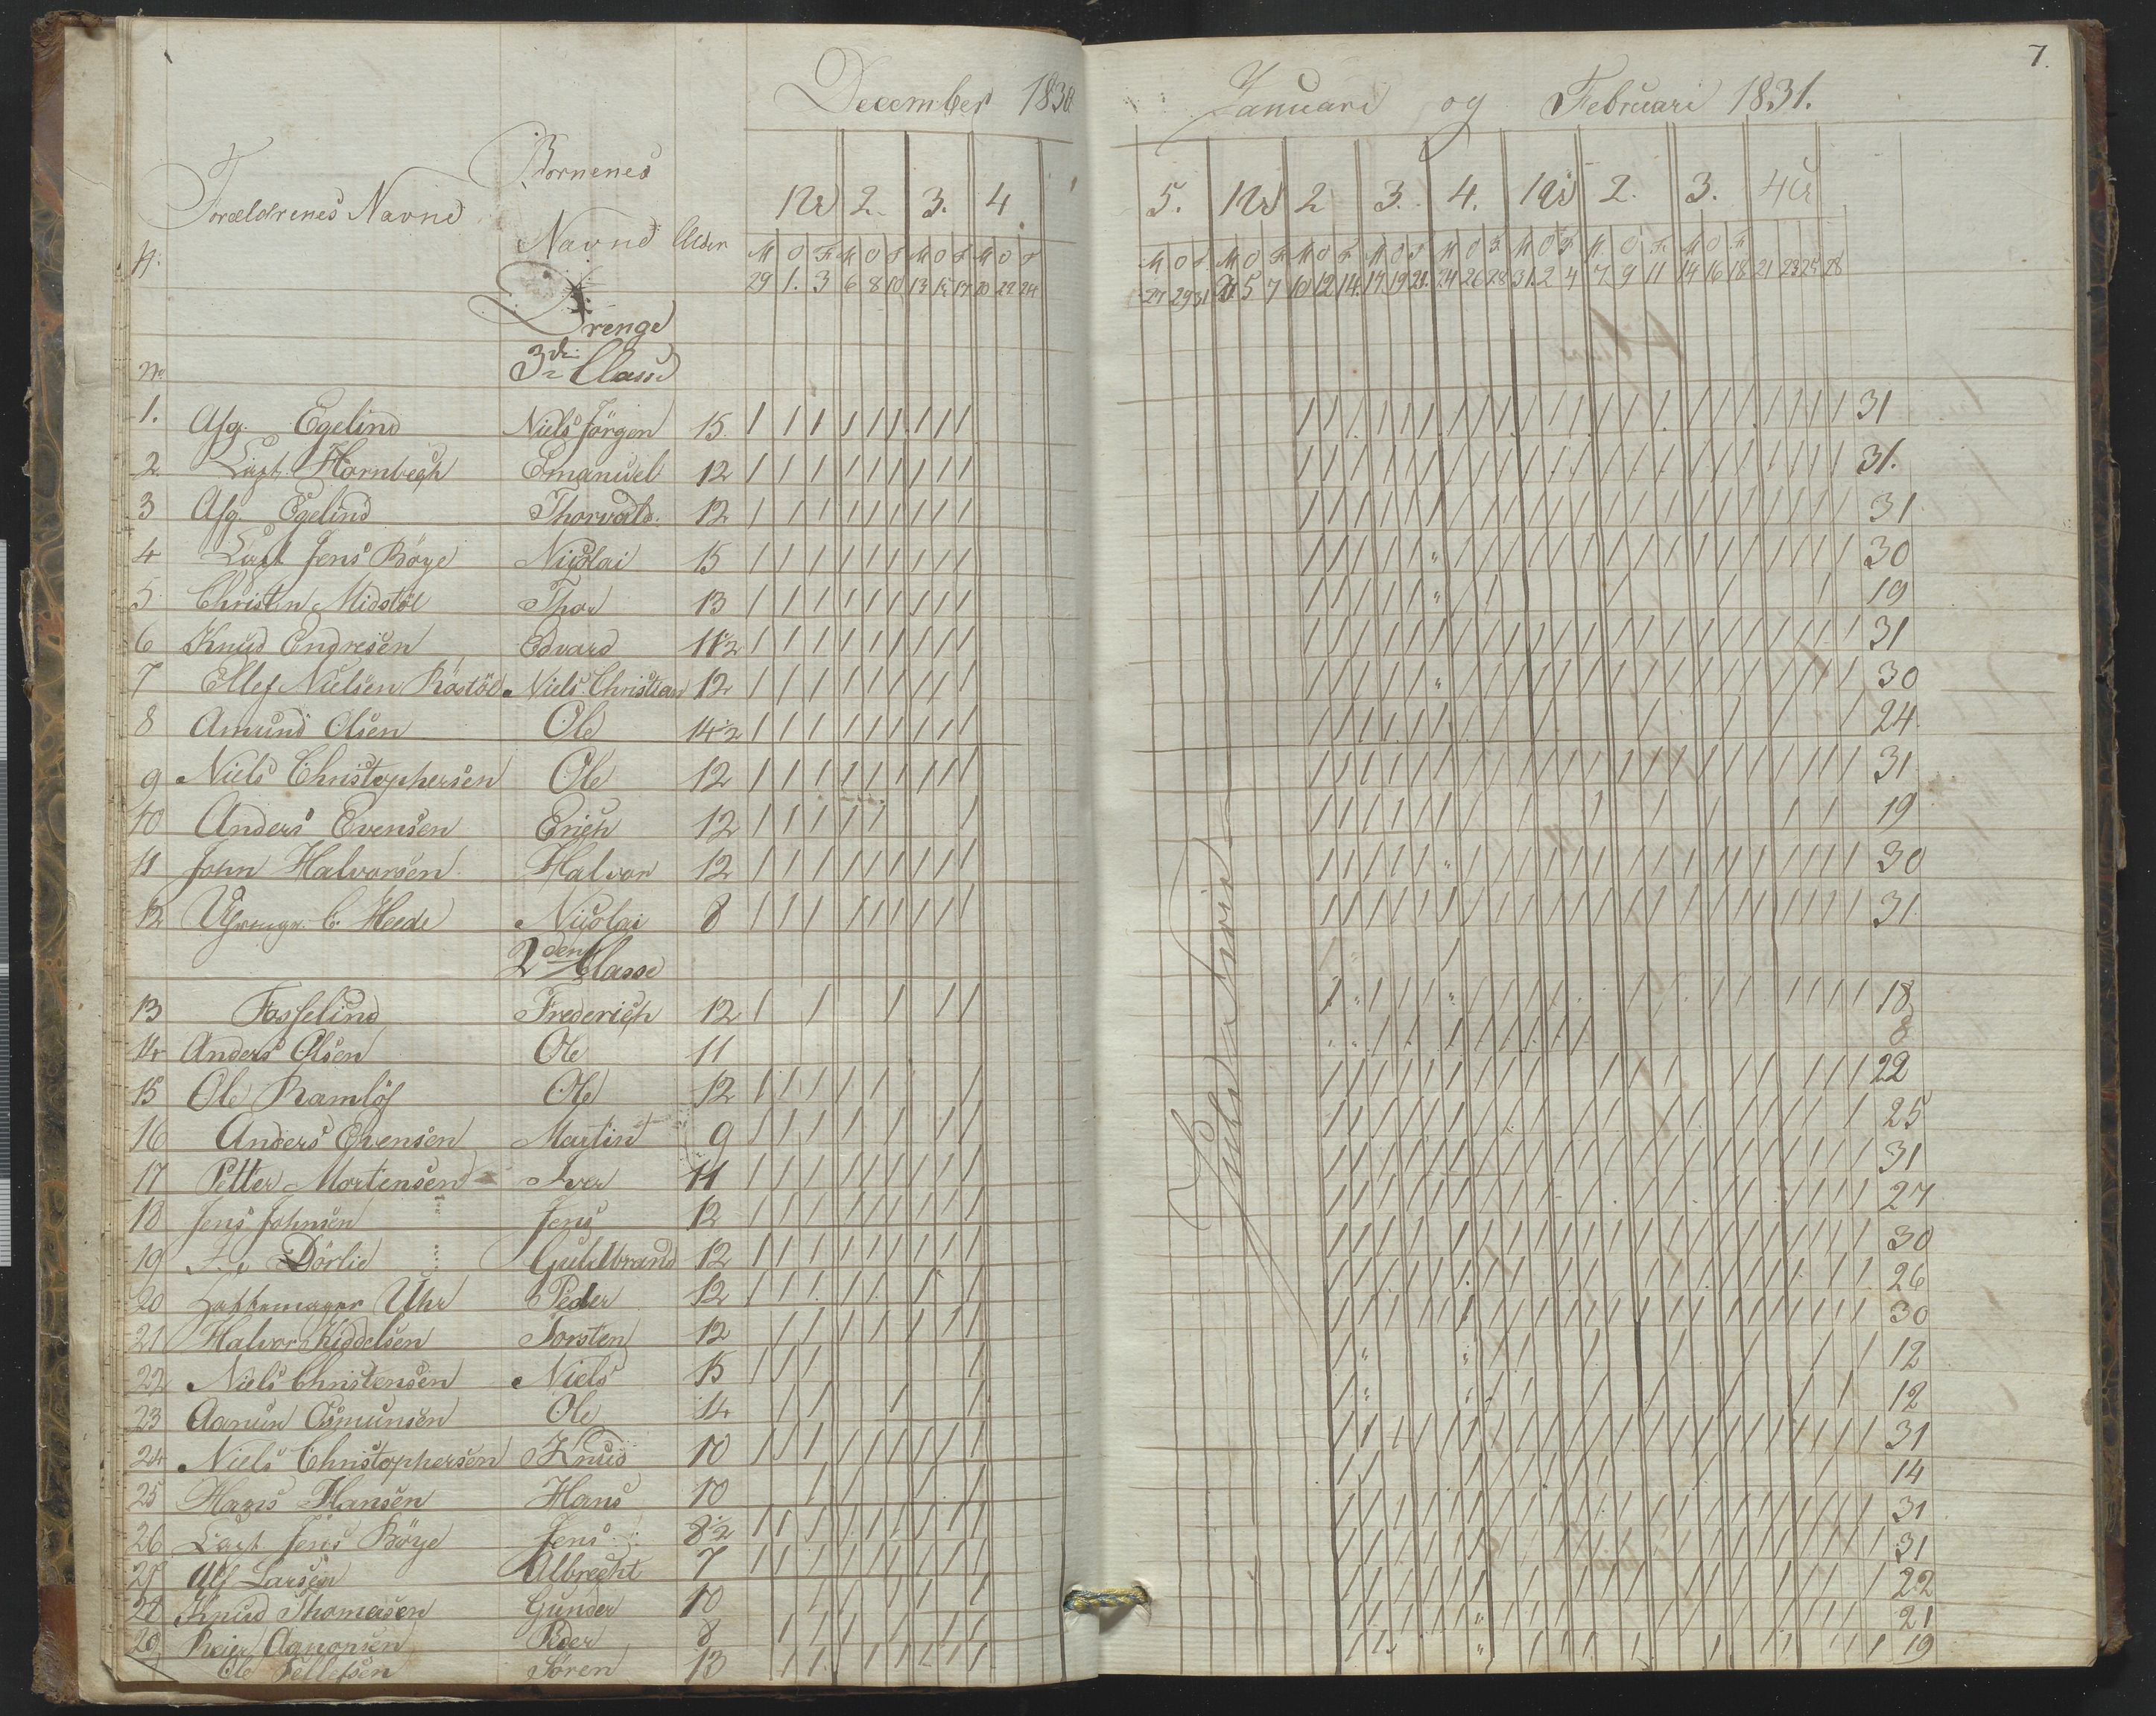 7.
December 1830
Januari og Februari 1831.
Forældrenes Navne
Börnenes
Navne Alder
1ste 2. 3. 4
5. 1ste 2 3. 4. 1ste 2. 3. 4de
M O F M O F M O F M O F
29 1. 3 6 8 10 13 15 17 20 22 24
M O F M O F M O F M O F M O F M O F M O F M O F
27 29 31 5 7 10 12 14. 17 19 21. 24 26 28 31. 2 4 7 9 11 14 16 18 21 23 25 28
Drenge
3die Classe
No
1. Asg. Egelind Niels Jörgen 15 31
2 Hornbech Emanuel 12 31.
3 Asg. Egelind Thorvald. 12 31
4 Jens Böye Nicolai 15 30
5 Christen Midstöl Thor 13 19
6 Knud Endresen Edvard 11½ 31
7 Ellef Nielsen Röstöl Niels Christian 12 30
8 Amund Olsen Ole 14½ 24
9 Niels Christophersen Ole 12 31
10 Anders Evensen Erich 12 19
11 John Halvorsen Halvor 12 30
12 C. Heede Nicolai 8 31
2den Classe
13 Fasselind Frederich 12 18
14 Anders Olsen Ole 11 8
15 Ole Ramlöf Ole 12 22
16 Anders Evensen Martin 9 25
17 Petter Mortensen Iver 11 31
18 Jens Johnsen Jens 12 27
19 Dörlie Guldbrand 12 30
20 Uhr Peder 12 26
21 Halvor Kiddelsen Torsten 12 30
22 Niels Christensen Niels 15 12
23 Aanun Osmunsen Ole 14 12
24 Niels Christophersen Knud 10 31
25 Hans Hansen Hans 10 14
26 Jens Böye Jens 8½ 31
27 Larsen Albrecht 7 31
28 Knud Thomesen Gunder 10 22
29 Reier Aanonsen Peder 8 21
Ole Tellefsen Sören 13 19
Jule